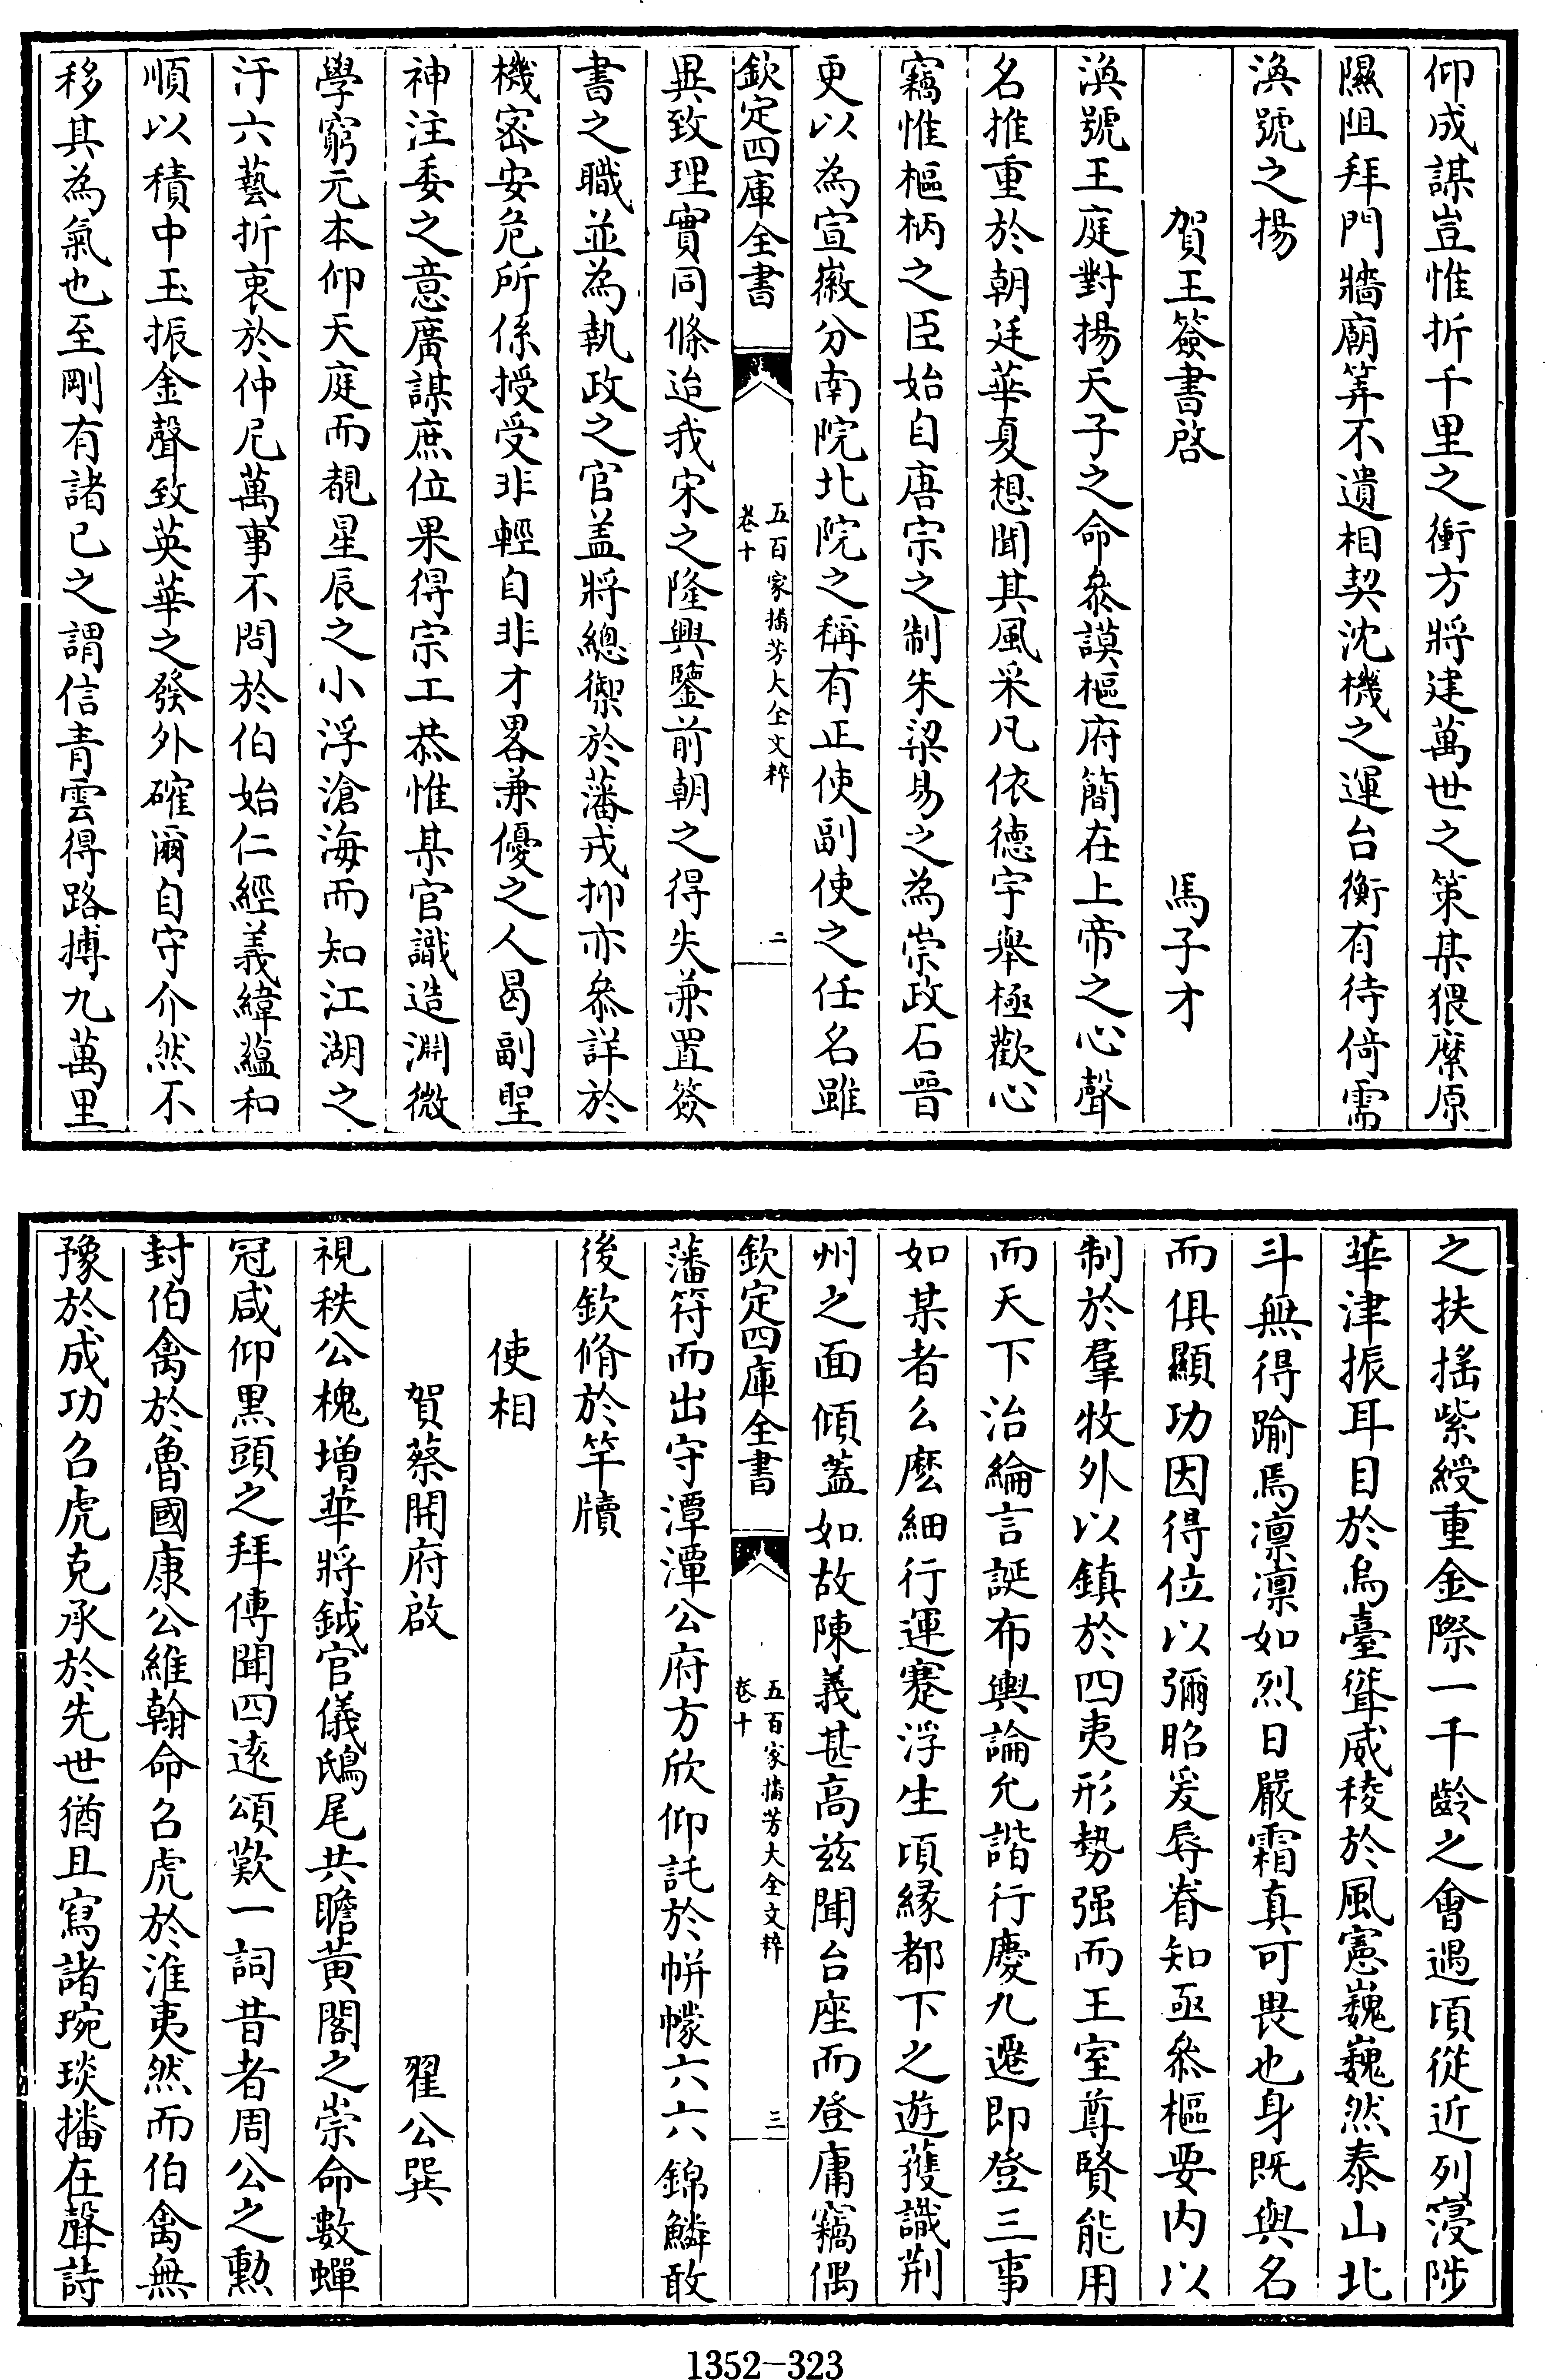 仰成謀豈惟折千里之衝方將建萬世之策某猥縻原
隰阻拜門牆廟筭不遺相契沈機之運台衡有待偹需
渙號之揚
賀王簽書啓　馬子才
渙號王庭對揚天子之命叅謨樞府簡在上帝之心聲
名推重於朝廷華夏想聞其風采凡依德宇舉極歡心
竊惟樞柄之臣始自唐宗之制朱梁易之為崇政石晉
更以為宣徽分南院北院之稱有正使副使之任名雖
欽定四庫全書　五百家播芳大全文粹　卷十　二
異致理實同條迨我宋之隆興鑒前朝之得失兼置簽
書之職並為執政之官盖將總禦於藩戎抑亦叅詳於
機宻安危所係授受非輕自非才畧兼優之人曷副聖
神注委之意廣謀庶位果得宗工恭惟某官識造淵微
學窮元本仰天庭而覩星辰之小浮滄海而知江湖之
汙六藝折衷於仲尼萬事不問於伯始仁經義緯蘊和
順以積中玉振金聲致英華之發外確爾自守介然不
移其為氣也至剛有諸已之謂信青雲得路搏九萬里
之扶揺紫綬重金際一千齡之會遇頃從近列寖陟
華津振耳目於烏臺聳威稜於風憲巍巍然泰山北
斗無得踰焉凛凛如烈日嚴霜真可畏也身既與名
而俱顯功因得位以彌昭爰辱眷知亟叅樞要内以
制於羣牧外以鎮於四夷形勢强而王室尊賢能用
而天下治綸言誕布輿論允諧行慶九遷即登三事
如某者么麽細行運蹇浮生頃縁都下之遊獲識荆
州之面傾蓋如故陳義甚高兹聞台座而登庸竊偶
欽定四庫全書　五百家播芳大全文粹　卷十　三
藩符而出守潭潭公府方欣仰託於帡幪六六錦鱗敢
後欽脩於竿牘
使相
賀蔡開府啟　翟公巽
視秩公槐增華將鉞官儀鴟尾共瞻黃閣之崇命數蟬
冠咸仰黒頭之拜傅聞四逺頌歎一詞昔者周公之勲
封伯禽於魯國康公維翰命召虎於淮夷然而伯禽無
豫於成功召虎克承於先世猶且寫諸琬琰播在聲詩
1352-323